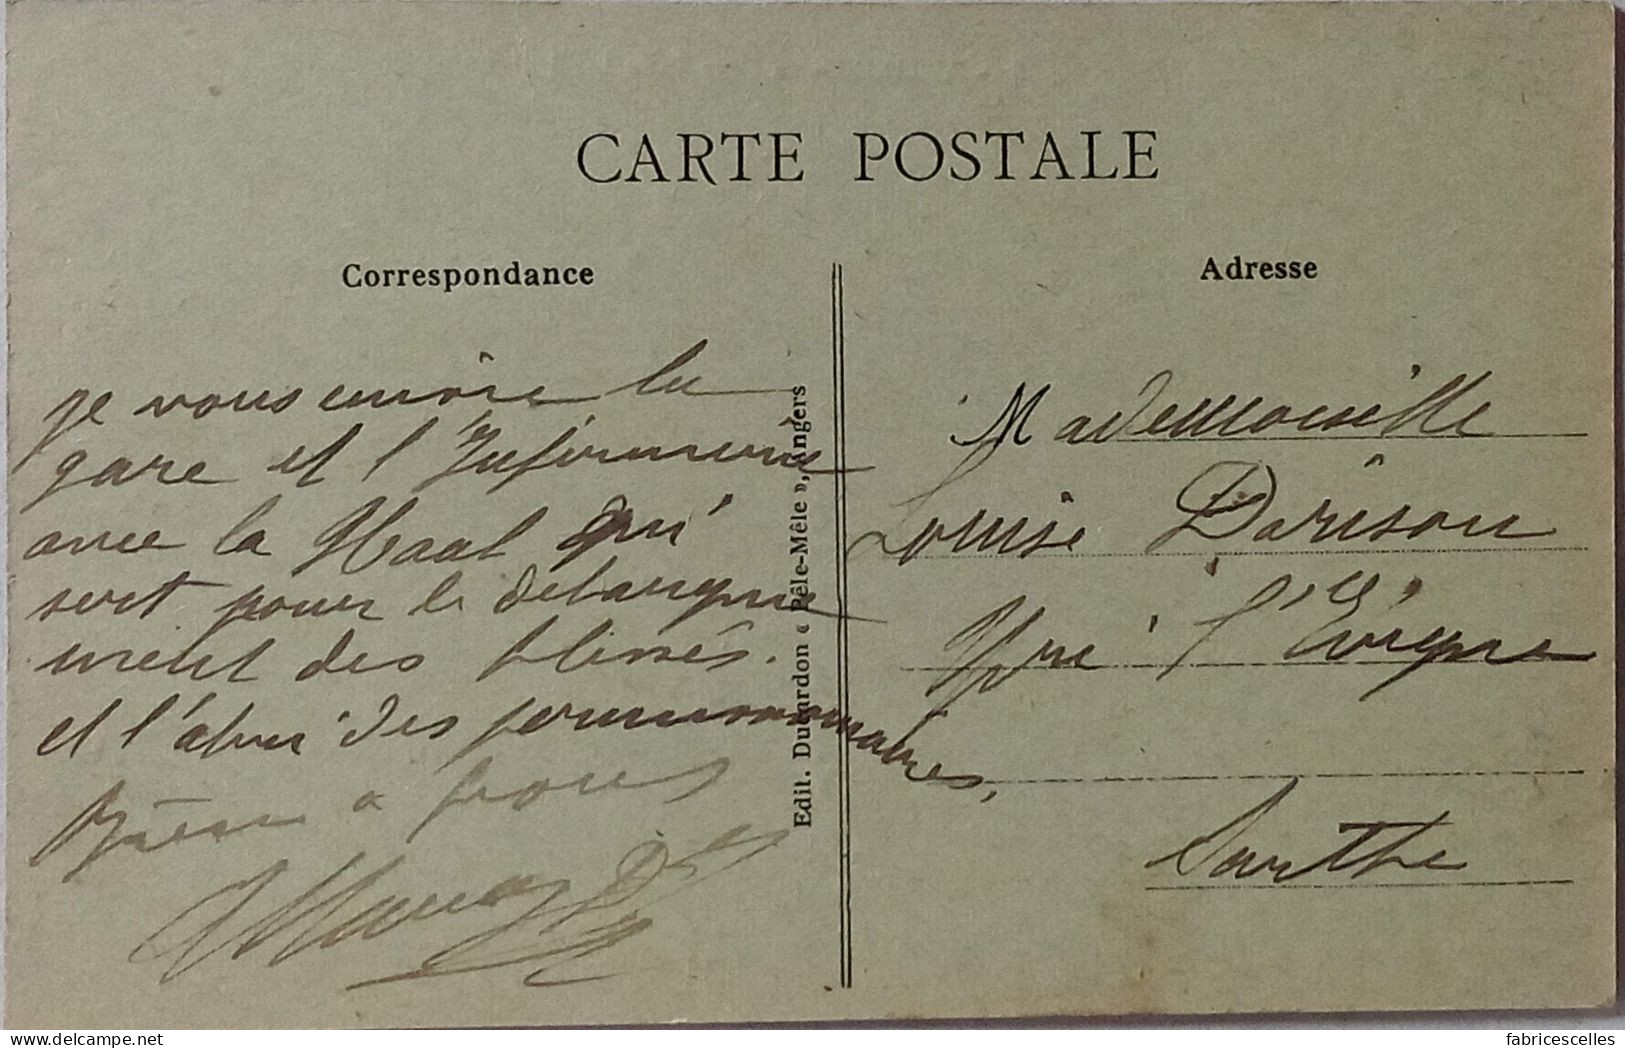 CARTE POSTALE
Correspondance
je vous envoie la
gare et l'Infirmerie
avec la Haal qui
sert pour le débarque
ment des blessés.
et l'abri des permissionnaires,
Bien a vous
Edit. Dubardon « Pêle-Mêle », Angers
Adresse
Mademoiselle
Louise
Yvré l'Evêque
Sarthe
fabricescelles